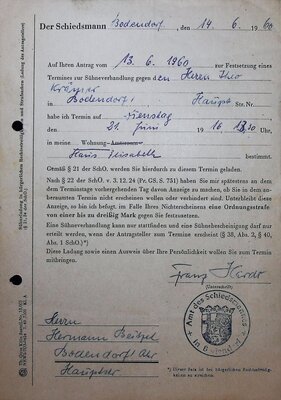 Der Schiedsmann Bodendorf, den 14. 6. 1960
Auf Ihren Antrag vom 13. 6. 1960 zur Festsetzung eines
Termines zur Sühneverhandlung gegen den Herrn Theo
Bodendorf, Haupt Str. Nr.
habe ich Termin auf Dienstag
21. Juni 19 16 Uhr,
in meine Wohnung
Haus Elisabeth bestimmt.
Gemäß § 21 der SchO. werden Sie hierdurch zu diesem Termin geladen.
Nach § 22 der SchO. v. 3. 12. 24 (Pr. GS. S. 731) haben Sie spätestens an dem
dem Terminstage vorhergehenden Tag davon Anzeige zu machen, ob Sie in dem anberaumten
Termin nicht erscheinen wollen oder verhindert sind. Unterbleibt diese
Anzeige, so bin ich befugt, im Falle Ihres Nichterscheinens eine Ordnungsstrafe
von einer bis zu dreißig Mark gegen Sie festzusetzen.
Eine Sühneverhandlung kann nur stattfinden und eine Sühnebescheinigung darf nur
erteilt werden, wenn der Antragsteller zum Termine erscheint (§ 38, Abs. 2, § 40,
Abs. 1 SchO.) *)
Diese Ladung sowie einen Ausweis über Ihre Persönlichkeit wollen Sie zum Termin
mitbringen.
(Unterschrift)
Amt des Schiedsmannes
Herrn
Hermann
Bodendorf/Ahr
Hauptstr
*) Dieser Satz ist bei bürgerlichen Rechtsstreitigkeiten
zu streichen.